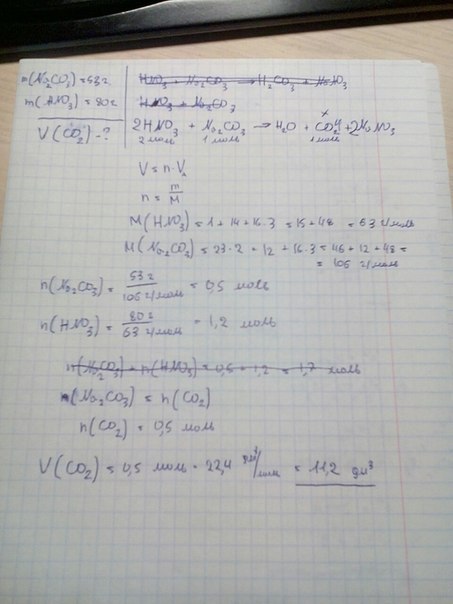 m(Na₂CO₃) = 53 г
m(HNO₃) = 80 г
V(CO₂) - ?
HNO₃ + Na₂CO₃ → H₂CO₃ + NaNO₃
HNO₃ + Na₂CO₃
x
2HNO₃ + Na₂CO₃ → H₂O + CO₂↑ + 2NaNO₃
2 моль 1 моль 1 моль
V = n · Vₘ
n = m/M
M(HNO₃) = 1 + 14 + 16·3 = 15 + 48 = 63 г/моль
M(Na₂CO₃) = 23·2 + 12 + 16·3 = 46 + 12 + 48 =
= 106 г/моль
n(Na₂CO₃) = 53 г / 106 г/моль = 0,5 моль
n(HNO₃) = 80 г / 63 г/моль = 1,2 моль
n(Na₂CO₃) + n(HNO₃) = 0,5 + 1,2 = 1,7 моль
n(Na₂CO₃) = n(CO₂)
n(CO₂) = 0,5 моль
V(CO₂) = 0,5 моль · 22,4 дм³/моль = 11,2 дм³